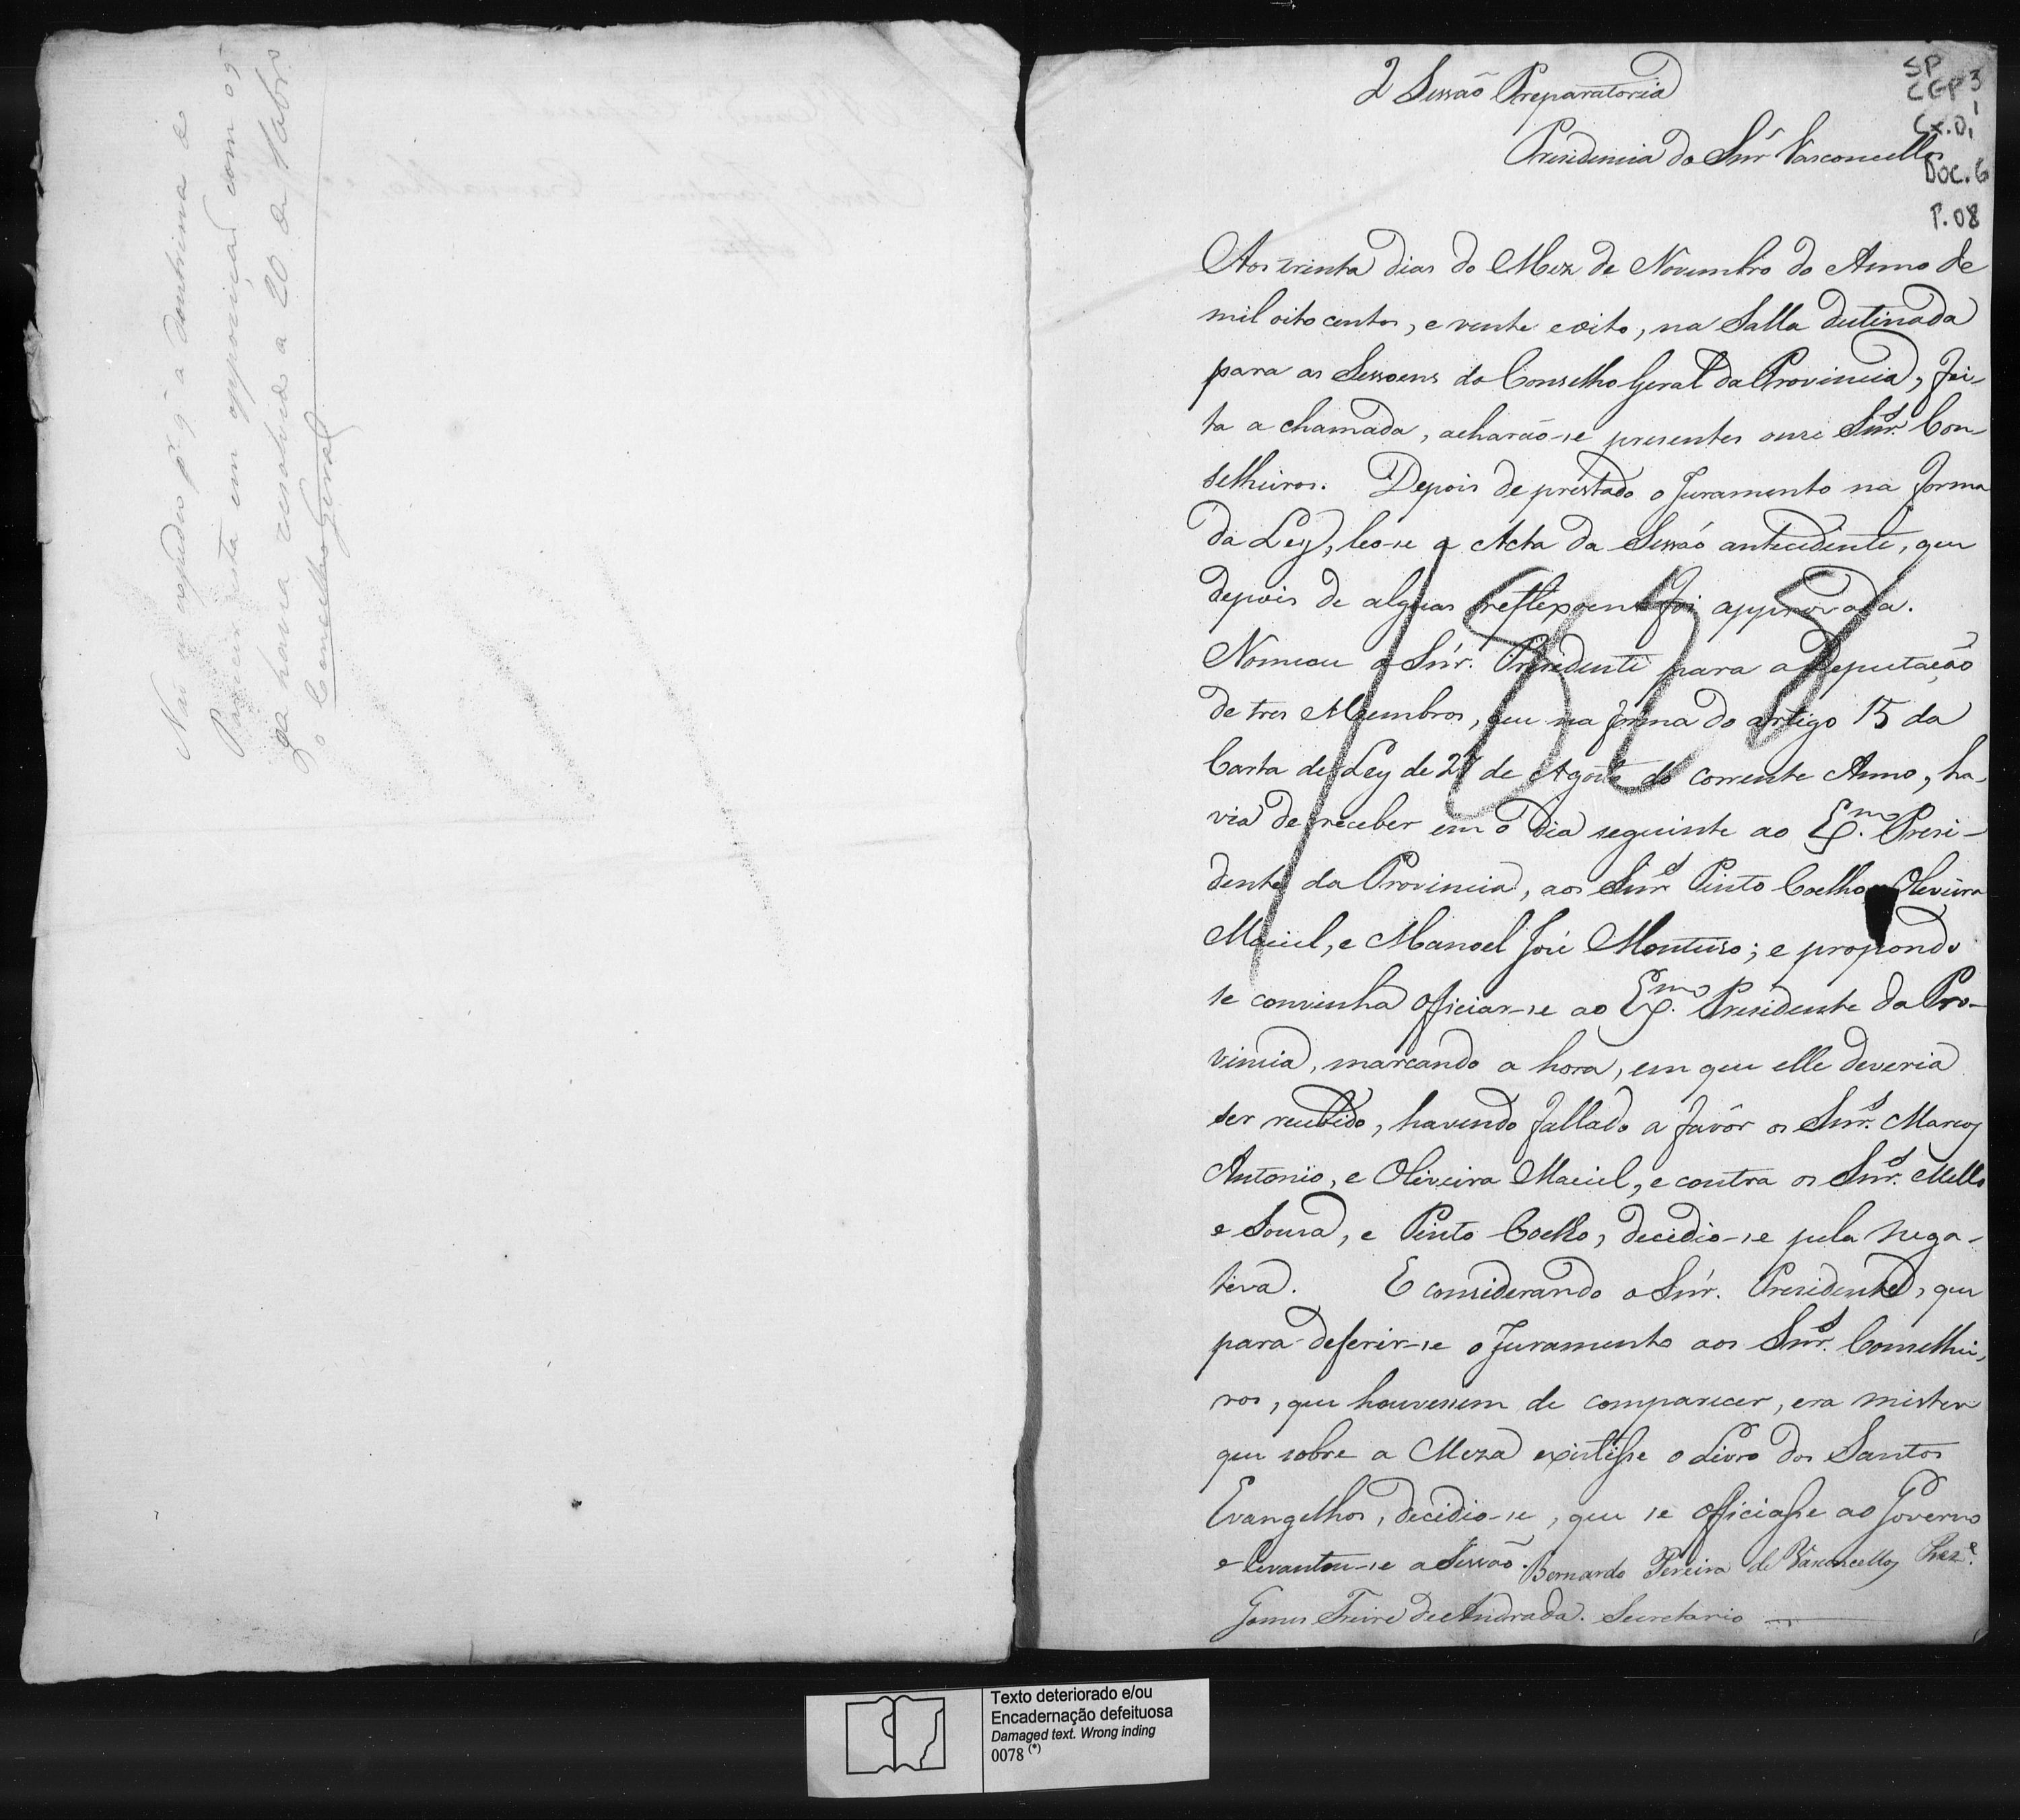 Não se expedio pr. q̃ a doutrina do
Parecer esta em opposição com o q̃
ja havia resolvido a 20 de Xabr.º
o Conselho Geral
2 Sessaõ Preparatoria
Presidencia do Snr Vasconcellos
SP
CGP 3
1
Cx. 01
Doc. 6
P. 08
Aos trinta dias do Mez de Novembro do Anno de
mil oito centos, e vente e oito, na Salla destinada
para as Sessoens do Conselho Geral da Provincia, fei-
ta a chamada, acharão-se presentes onze Snr.s Con-
selheiros. Depois de prestado o Juramento na forma
da Ley, leo-se a Acta da Sessão antecedente, que
depois de alguas reflexoens foi approvada.
Nomeou o Snr. Presidente para a Deputação
de tres Membros, que na forma do artigo 15 da
Carta de Ley de 27 de Agosto do corrente Anno, ha-
via de receber em o Dia seguinte ao Ex.mo Presi-
dente da Provincia, aos Snr.s Pinto Coelho, Oliveira
Maciel, e Manoel José Monteiro; e propondo
se convinha officiar-se ao Ex.mo Presidente da Pro-
vincia, marcando a hora, em que elle deveria
ser recebido, havendo fallado a favôr os Snr.s Marcos
Antonio, e Oliveira Maciel, e contra os Snr.s Mello
e Souza, e Pinto Coelho, decedio-se pela nega-
teva. E considerando o Snr. Presidente, que
para deferir-se o Juramento aos Snr.s Conselhei-
ros, que houvessem de comparecer, era mister
que sobre a Meza existisse o Livro dos Santos
Evangelhos, decedio-se, que se officiasse ao Governo
e levantou-se a Sessaõ. Bernardo Pereira de Vasconcellos Prez.e
Gomes Freire de Andrada. Secretario
Texto deteriorado e/ou
Encadernação defeituosa
Damaged text. Wrong inding
0078 (*)